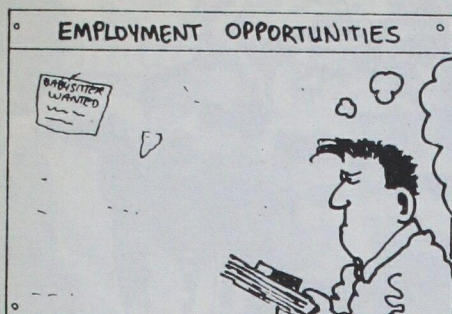 EMPLOYMENT OPPORTUNITIES
BABYSITTER
WANTED